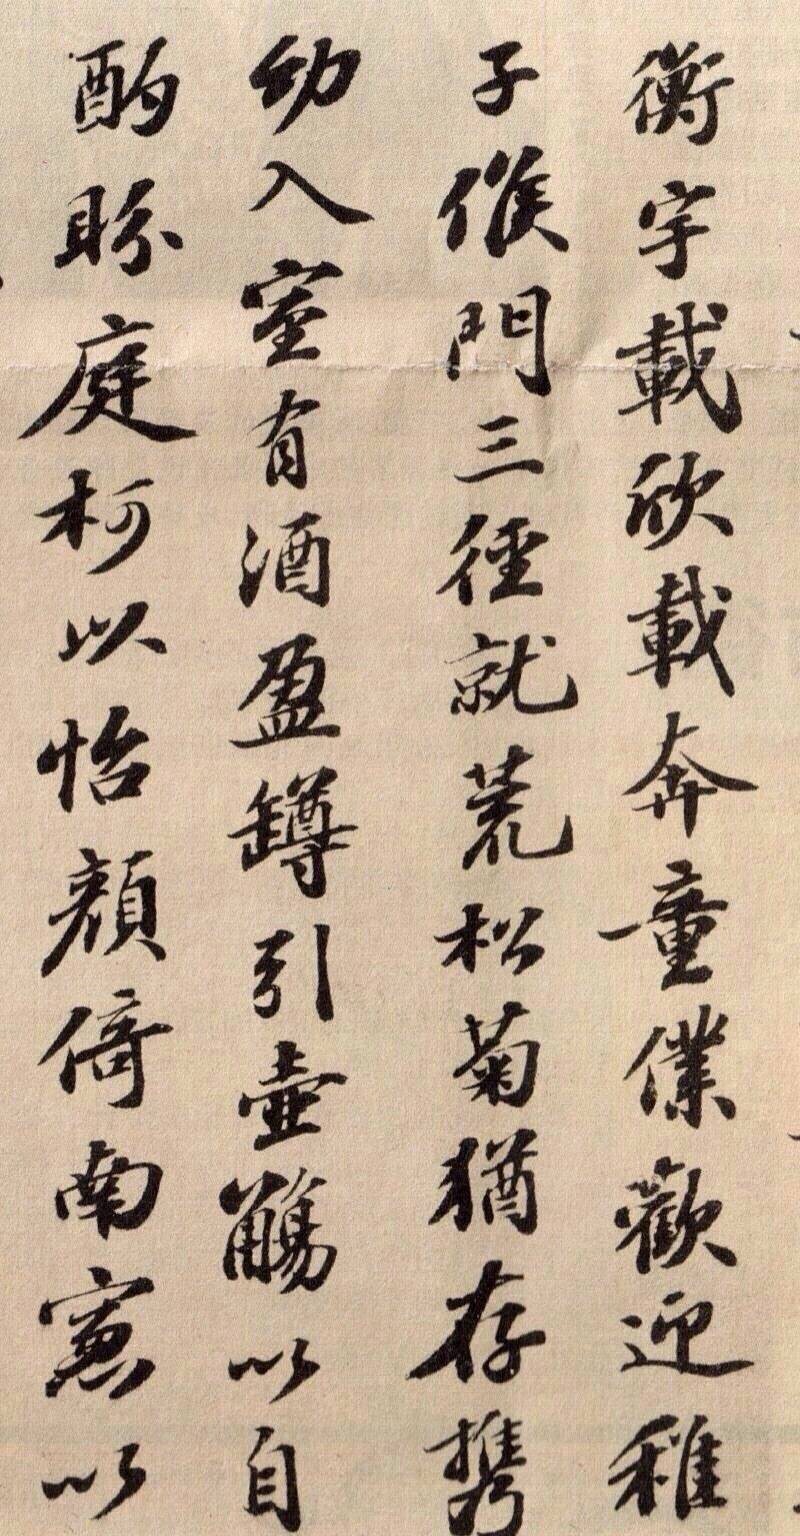 衡宇載欣載奔童僕歡迎稚
子候門三徑就荒松菊猶存攜
幼入室有酒盈罇引壺觴以自
酌眄庭柯以怡顏倚南窓以